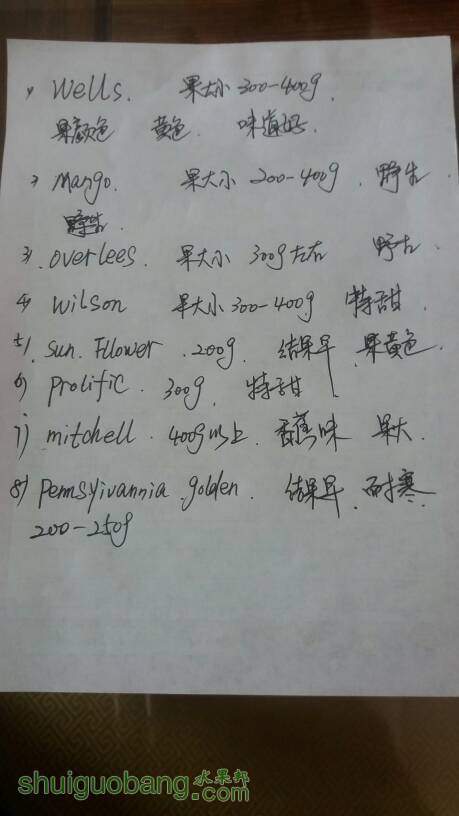 1) Wells. 果大小 300-400g.
果颜色 黄色. 味道好.
2) Mango. 果大小 200-400g. 野生
野生
3). Overlees. 果大小 300g左右 野生
4) Wilson 果大小 300-400g 特甜.
5). Sun. Fllower. 200g. 结果早. 果黄色.
6) Prolific. 300g. 特甜
7) mitchell. 400g以上. 香蕉味 果大.
8) Pennsyivannia golden. 结果早. 耐寒.
200-250g
shuiguobang.com 水果邦